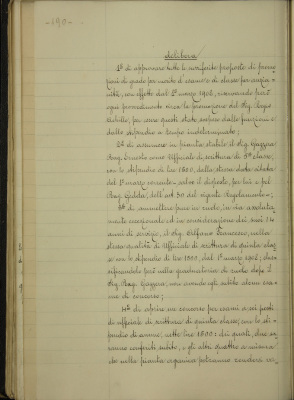 -190-
delibera
1º di approvare tutte le suriferite proposte di promo-
zioni di grado per merito d'esame e di classe per anzia-
nità, con effetto dal 1º marzo 1902, riservando però
ogni provvedimento circa la promozione del Sig.
stabile, per essere questi stato sospeso dalle funzioni e
dallo stipendio a tempo indeterminato;
2º di assumere in pianta stabile il Sig. Gazzera
Rag. Ernesto come Ufficiale di scrittura di 5ª classe,
con lo stipendio di lire 1500, dalla stessa data
del 1º marzo corrente, salvo il disposto, per lui e pel
Rag. dell'art. 30 del vigente Regolamento;
3º di ammettere pure in ruolo, in via assoluta-
mente eccezionale ed in considerazione dei suoi 14
anni di servizio, il Sig. Alfano Francesco, nella
stessa qualità di Ufficiale di scrittura di quinta clas-
se con lo stipendio di lire 1500, dal 1º marzo 1902, clas-
sificandolo però nella graduatoria di ruolo dopo il
Sig. Rag. Gazzera, non avendo egli subìto alcun esa-
me di concorso;
4º di aprire un concorso per esami a sei posti
di ufficiale di scrittura di quinta classe, con lo sti-
pendio di annue nette lire 1500: di questi, due sa-
ranno conferiti subito, e gli altri quattro a misura
che nella pianta organica potranno rendersi va-